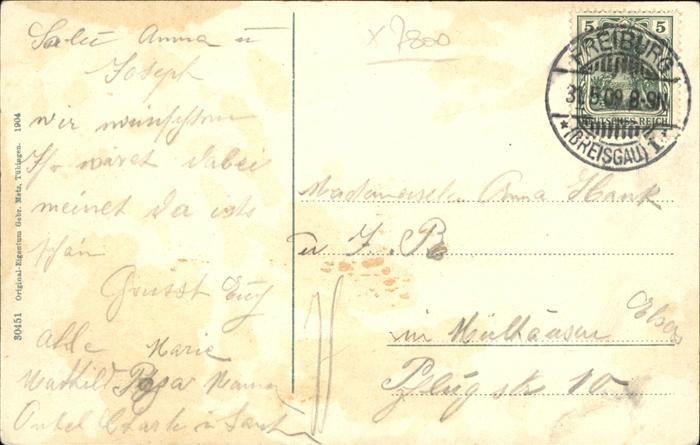 Salü Anna u
Joseph
wir wünschten
Ihr wäret dabei
meinet da ists
schön
Grüsst Euch
Alle Marie
Mathild Rosa Mama
Onkel u Tant
30451 Original-Eigentum Gebr. Metz, Tübingen. 1904
x 7800
5 5
DEUTSCHES REICH
FREIBURG
31.5.09 8-9N
*(BREISGAU) 1*
Mademoiselle Anna Hank
u J. B
in Mülhausen Elsass
Pflugstr 10